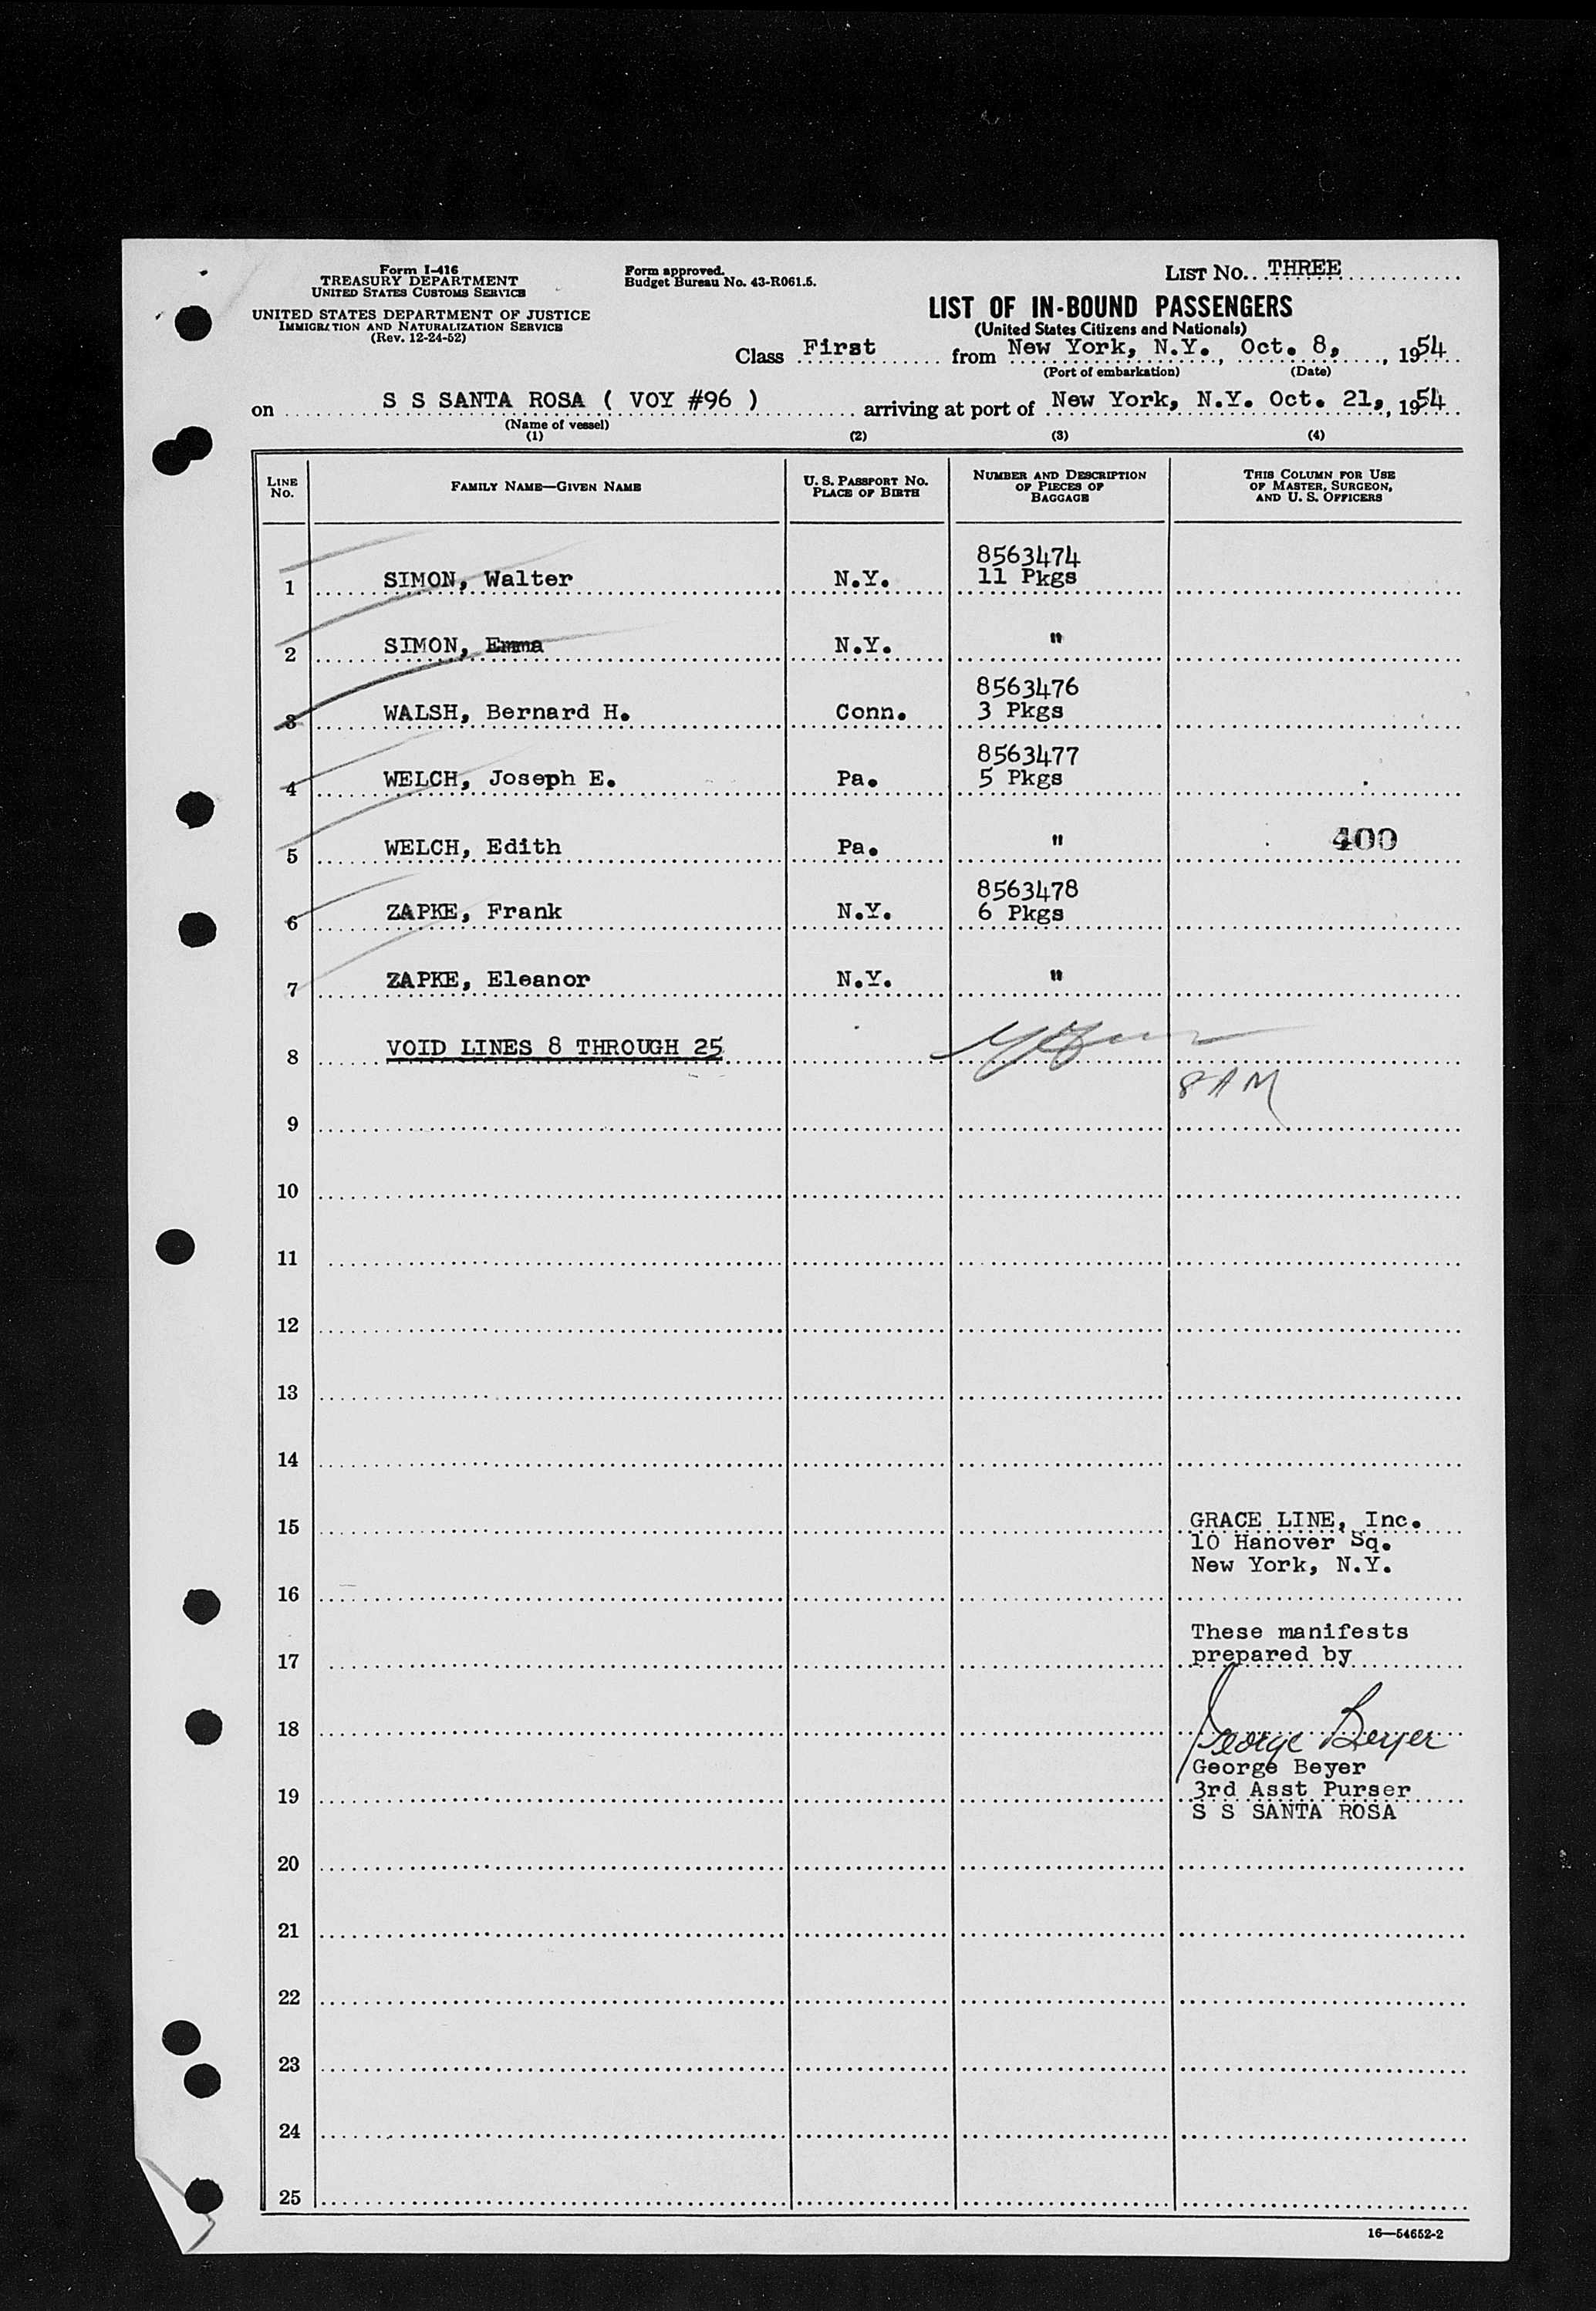 Form I-416
TREASURY DEPARTMENT
UNITED STATES CUSTOMS SERVICE
UNITED STATES DEPARTMENT OF JUSTICE
IMMIGRATION AND NATURALIZATION SERVICE
(Rev. 12-24-52)
Form approved.
Budget Bureau No. 43-R061.5.
LIST NO. THREE
LIST OF IN-BOUND PASSENGERS
(United States Citizens and Nationals)
Class First from New York, N.Y., Oct. 8, , 1954
(Port of embarkation) (Date)
on S S SANTA ROSA ( VOY #96 ) arriving at port of New York, N.Y. Oct. 21, , 1954
(Name of vessel)
(1) (2) (3) (4)
LINE NO. FAMILY NAME—GIVEN NAME U. S. PASSPORT NO. PLACE OF BIRTH NUMBER AND DESCRIPTION OF PIECES OF BAGGAGE THIS COLUMN FOR USE OF MASTER, SURGEON, AND U. S. OFFICERS
8563474
1 SIMON, Walter N.Y. 11 Pkgs
2 SIMON, Emma N.Y. "
8563476
3 WALSH, Bernard H. Conn. 3 Pkgs
8563477
4 WELCH, Joseph E. Pa. 5 Pkgs
5 WELCH, Edith Pa. " 400
8563478
6 ZAPKE, Frank N.Y. 6 Pkgs
7 ZAPKE, Eleanor N.Y. "
8 VOID LINES 8 THROUGH 25
8 AM
9
10
11
12
13
14
15 GRACE LINE, Inc.
10 Hanover Sq.
New York, N.Y.
16
These manifests
17 prepared by
18 George Beyer
George Beyer
19 3rd Asst Purser
S S SANTA ROSA
20
21
22
23
24
25
16—54652-2